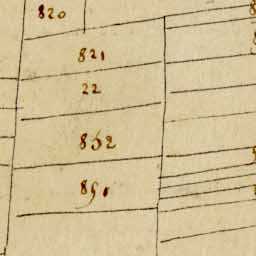 820
821
22
862
891